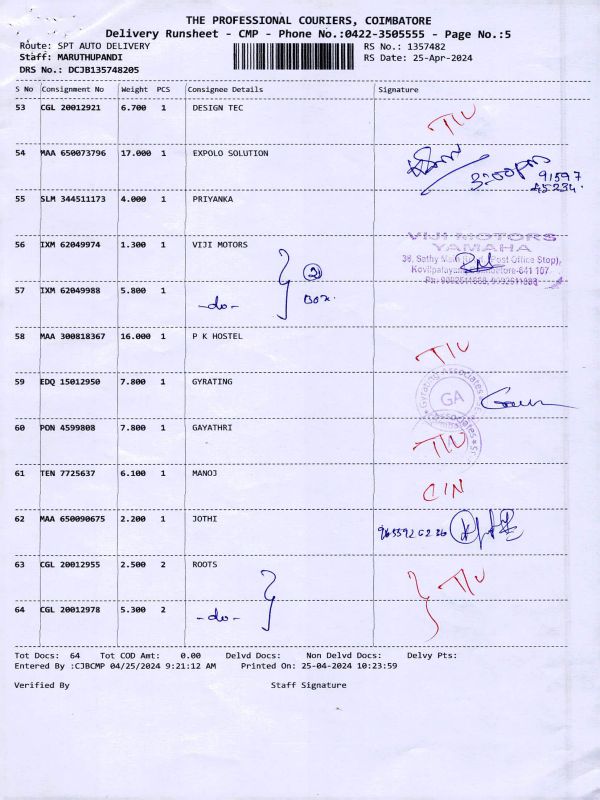 THE PROFESSIONAL COURIERS, COIMBATORE
Delivery Runsheet - CMP - Phone No.:0422-3505555 - Page No.:5
Route: SPT AUTO DELIVERY RS No.: 1357482
Staff: MARUTHUPANDI RS Date: 25-Apr-2024
DRS No.: DCJB135748205
S No Consignment No Weight PCS Consignee Details Signature
53 CGL 20012921 6.700 1 DESIGN TEC
54 MAA 650073796 17.000 1 EXPOLO SOLUTION
3:00pm 91597
45234.
55 SLM 344511173 4.000 1 PRIYANKA
VIJI MOTORS
YAMAHA
56 IXM 62049974 1.300 1 VIJI MOTORS
38, Sathy Main (Post Office Stop),
2
57 IXM 62049988 5.800 1 -do- BOX.
58 MAA 300818367 16.000 1 P K HOSTEL
T/U
59 EDQ 15012950 7.800 1 GYRATING
Gyrating Associates
GA
60 PON 4599808 7.800 1 GAYATHRI
T/U
61 TEN 7725637 6.100 1 MANOJ
C/N
62 MAA 650090675 2.200 1 JOTHI
63 CGL 20012955 2.500 2 ROOTS
T/U
64 CGL 20012978 5.300 2 -do-
Tot Docs: 64 Tot COD Amt: 0.00 Delvd Docs: Non Delvd Docs: Delvy Pts:
Entered By :CJBCMP 04/25/2024 9:21:12 AM Printed On: 25-04-2024 10:23:59
Verified By Staff Signature